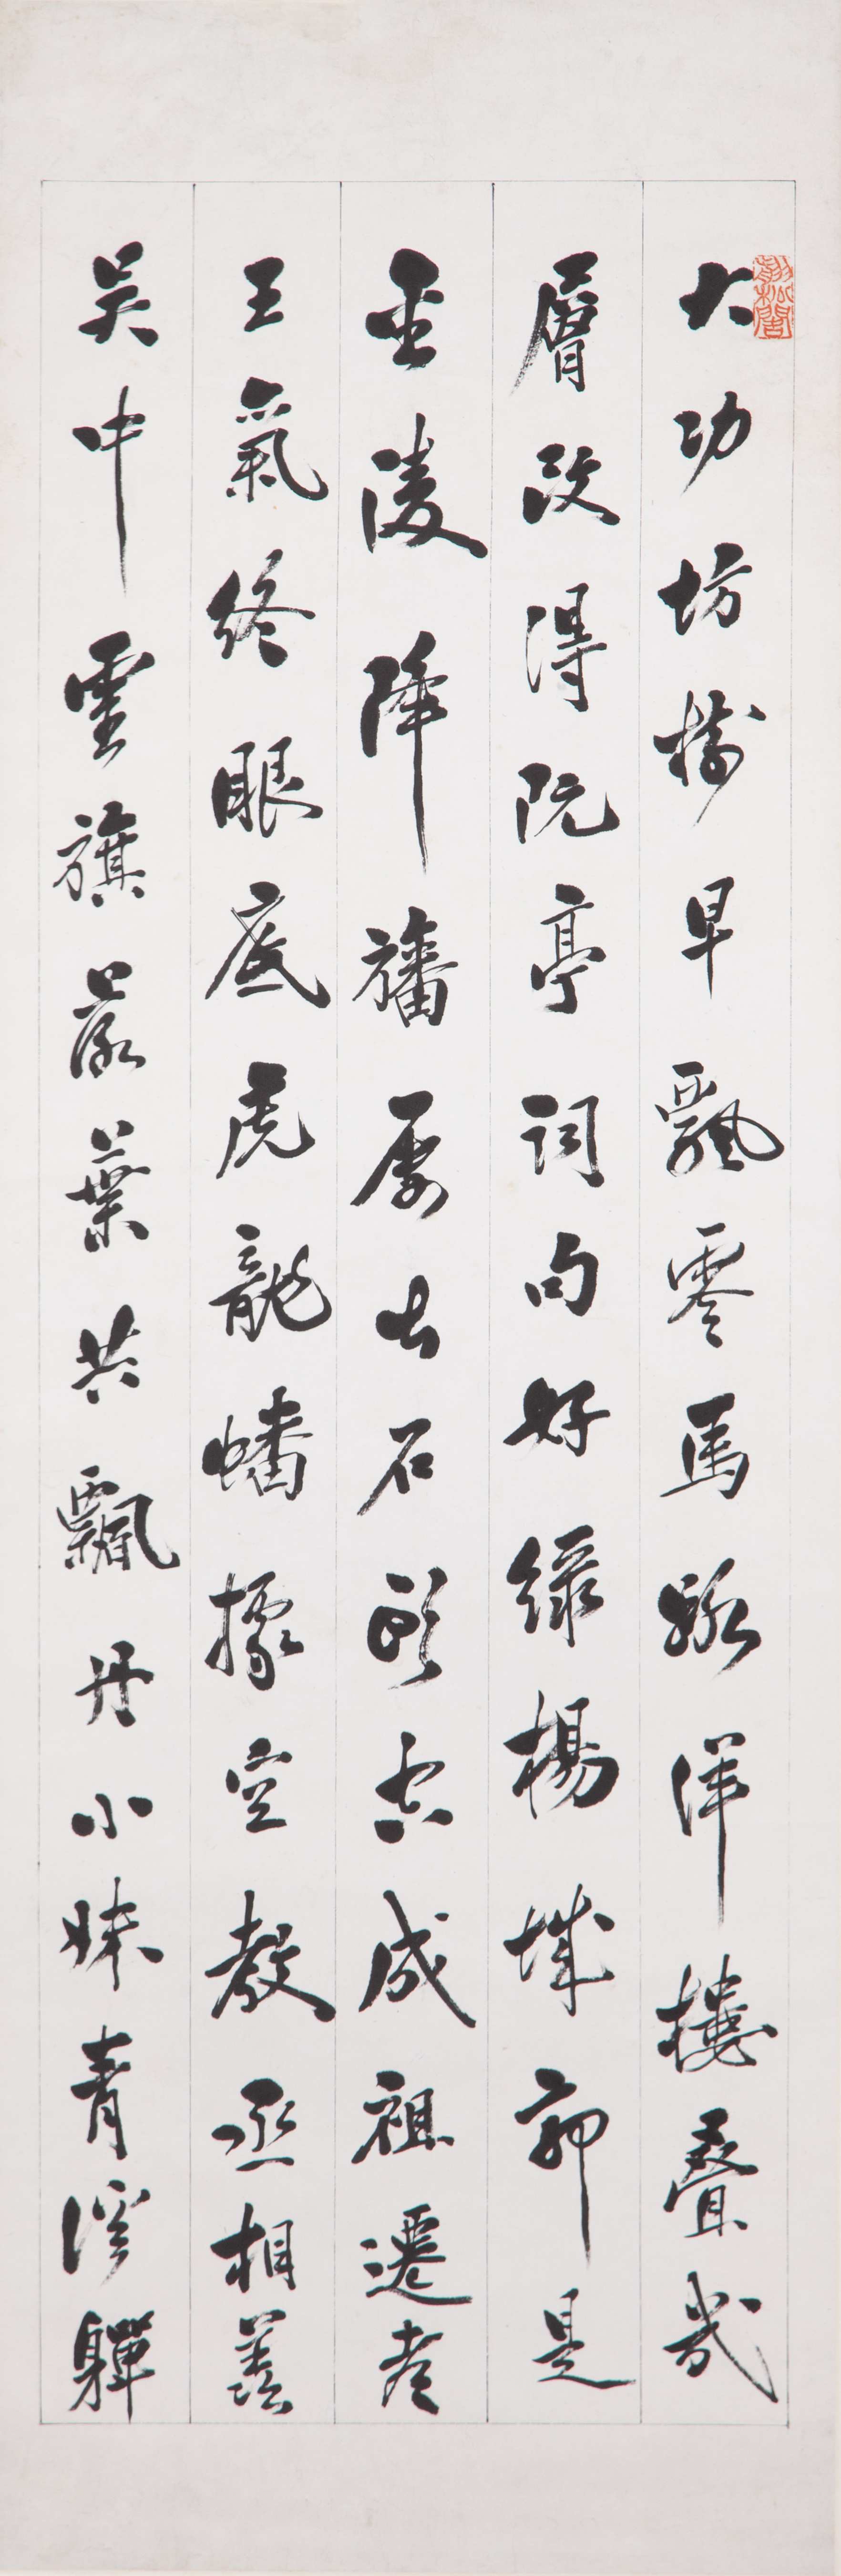 大功坊樹早飄零馬跡洋樓疊幾
層改得阮亭詞句好綠楊城郭是
金陵降旛屢出石頭空成祖遷都
王氣終眼底虎龍蟠據空教丞相羨
吳中雲旗落葉共飄丹小妹青溪嚲